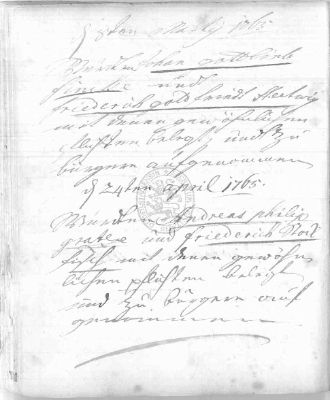 d 8ten Martij 1765
Wurden Johan gottlieb
und
friederich gottfriedt Hertwig
mit denen gewöhnlichen
Pflichten belegt, und zu
bürgern aufgenommen
d 24ten april 1765.
Wurden Andreas philip
grates und friederich
mit denen gewöhn
lichen pflichten belegt
und zu bürgern auf
genommen